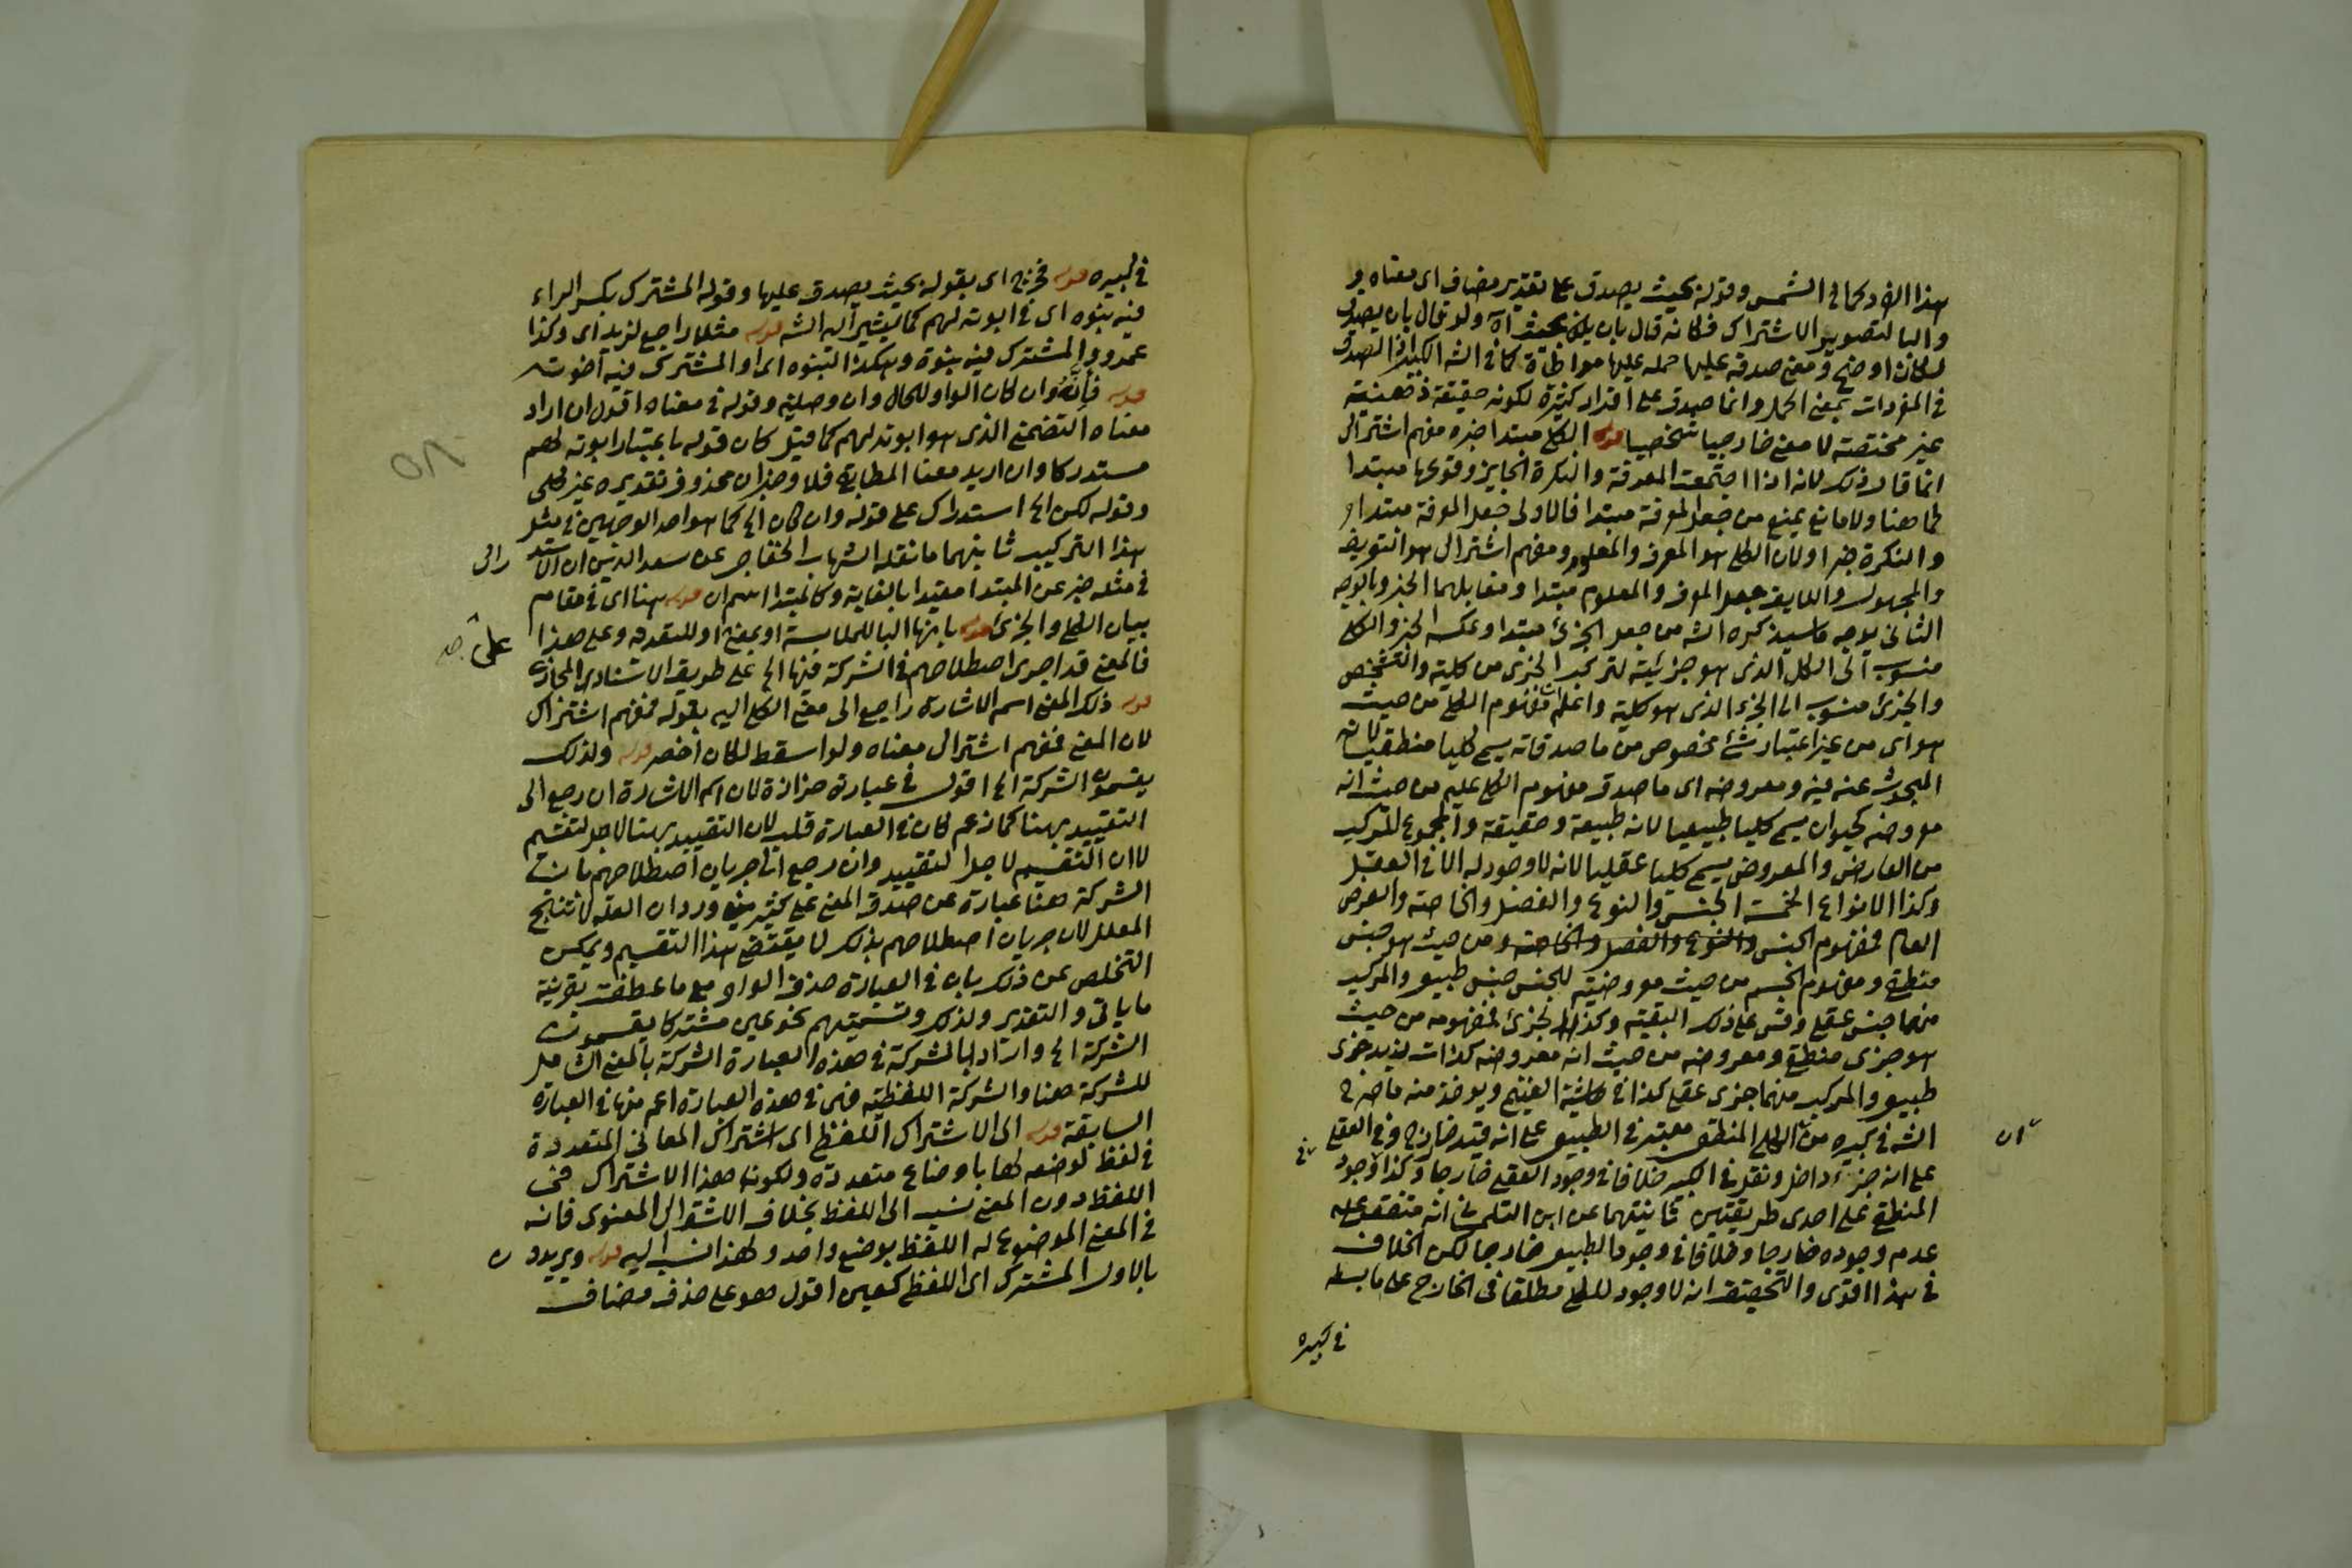 هذا الفرد كما في الشمس وقوله بحيث يصدق على تقدير مضاف اى معناه و
والبا لتصوير الاشتراك فكانه قال بان يكن بحيث اه ولو قال بان يصدق
لكان اوضح ومعنى صدقه عليها حمله عليها مواطاة كما في الشه الكبير اذ الصدق
في المفردات بمعنى الحمل وانما صدق على افراد كثيرة لكونه حقيقة ذهنية
غير مختصة لا معنى خارجيا شخصيا قوله الكلى مبتدا خبره مفهم اشتراك
انما قال ذلك لانه اذا اجتمعت المعرفة والنكرة الجايز وقوعها مبتدا
كما هنا ولا مانع يمنع من جعل المعرفة مبتدا فالاولى جعل المعرفة مبتدا و
والنكرة خبرا ولان الكلى هو المعرف والمعلوم ومفهم اشتراك هو التعريف
والمجهول واللايق جعل المعرف والمعلوم مبتدا ومقابلهما الخبر وبالوجه
الثاني يوجه ما سيذكره الشه من جعل الجزئى مبتدا وعكسه الخبر والكلى
منسوب الى الكل الذى هو جزئيته لتركب الجزئ من كلية والتشخص
والجزئ منسوب الى الجزء الذى هو كليه واعلم ان مفهوم الكلى من حيث
هو اى من غير اعتبار شئ مخصوص من ما صدقاته يسمى كليا منطقيا لانه
المبحوث عنه فيه ومعروضه اى ما صدق مفهوم الكلى عليه من حيث انه
معروضه كحيوان يسمى كليا طبيعيا لانه طبيعة وحقيقة والمجموع المركب
من العارض والمعروض يسمى كليا عقليا لانه لا وجود له الا في العقل
وكذا الانواع الخمسة الجنس والنوع والفصل والخاصة والعرض
العام فمفهوم الجنس والنوع والفصل والخاصة ومن حيث هو جنس
منطقى ومفهوم الجسم من حيث معروضيته للجنس جنس طبيعى والمركب
منهما جنس عقلى وقس على ذلك البقية وكذا الجزئ فمفهومه من حيث
هو جزى منطقى ومعروضه من حيث انه معروضه كذات زيد جزى
طبيعى والمركب منهما جزى عقلى كذا في حاشية الغنيم ويوخذ منه ما صرح
الشه في كبيره من ان الكلى المنطقى معتبر في الطبيعى على انه قيد خارج وفى العقلى
ان
على انه جزء داخل ونقل في الكبير خلافا في وجود العقلى خارجا وكذا في وجود
المنطقى على احدى طريقتين ثانيتهما عن ابن التلمسانى انه متفق على
عدم وجوده خارجا وخلافا في وجود الطبيعى خارجا لكن الخلاف
في هذا اقوى والتحقيق انه لا وجود للكلى مطلقا فى الخارج على ما بسطه
في كبيره
في كبيره قوله فخرج اى بقوله بحيث يصدق عليها وقوله المشترك بكسر الراء
فيه بنوه اى في ابوته لهم كما يشير اليه الشه قوله مثلا راجع لزيد اى وكذا
عمرو والمشترك فيه بنوة وهكذا البنوه اى او المشترك فيه اخوت
قوله فانه وان كان الواو للحال وان وصلية وقوله في معناه اقول ان اراد
معناه التضمنى الذى هو ابوته لهم كما قيل كان قوله باعتبار ابوته لهم
مستدركا وان اريد معنا المطابقى فلا وخبر ان محذوف تقديره غير كلى
وقوله لكن الخ استدراك على قوله وان كان الخ كما هو احد الوجهين في مثل
هذا التركيب ثانيهما ما نقله الشهاب الخفاجى عن سعد الدين ان الاستد
راك
في مثله خبر عن المبتدا مقيدا بالغاية وكالمبتدا اسم ان قوله هنا اى في مقام
بيان الكلى والجزئ قوله بانها البا للملابسة او بمعنى او للتعدية وعلى هذا
على صح
فالمعنى قد اجرى اصطلاحهم في الشركة فيها الخ على طريق الاسناد المجازى
قوله ذلك المعنى اسم الاشارة راجع الى معنى الكلى اليه بقوله فمفهم اشتراك
لان المعنى فمفهم اشتراك معناه ولو اسقط لكان اخصر قوله ولذلك
يقسمون الشركة الخ اقول في عبارته حزازة لان اسم الاشارة ان رجع الى
التقييد بهنا كما زعم كان في العبارة قلب لان التقييد بهنا لاجل التقسيم
لا ان التقسيم لاجل التقييد وان رجع الى جريان اصطلاحهم بان
الشركة هنا عبارة عن صدق المعنى على كثيرين ورد ان العلة لا تنتج
المعلل لان جريان اصطلاحهم بذلك لا يقتضى هذا التقسيم ويمكن
التخلص عن ذلك بان في العبارة حذف الواو مع ما عطفت بقرينة
ما ياتى والتقدير ولذلك وتسميتهم نحو عين مشتركا يقسمون
الشركة الخ واراد بالشركة في هذه العبارة الشركة بالمعنى الشامل
للشركة هنا والشركة اللفظية فهى في هذه العبارة اعم منها في العبارة
السابقة قوله الى الاشتراك اللفظى اى اشتراك المعانى المتعددة
في لفظ لوضعه لها باوضاع متعددة ولكون هذا الاشتراك فى
اللفظ دون المعنى نسب الى اللفظ بخلاف الاشتراك المعنوى فانه
في المعنى الموضوع له اللفظ بوضع واحد ولهذا نسب اليه قوله ويريدون
بالاول المشترك اى اللفظى كعين اقول هو على حذف مضاف